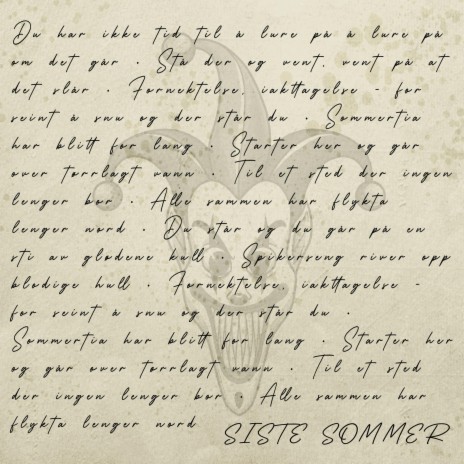 Du har ikke tid til å lure på å lure på
om det går . Stå der og vent, vent på at
det slår . Fornektelse, iakttagelse - for
seint å snu og der står du . Sommertia
har blitt for lang . Starter her og går
over torrlagt vann . Til et sted der ingen
lenger bor . Alle sammen har flykta
lenger nord . Du står og du går på en
sti av glodene kull . Spikerseng river opp
blodige hull . Fornektelse, iakttagelse -
for seint å snu og der står du .
Sommertia har blitt for lang . Starter her
og går over torrlagt vann . Til et sted
der ingen lenger bor . Alle sammen har
flykta lenger nord
SISTE SOMMER